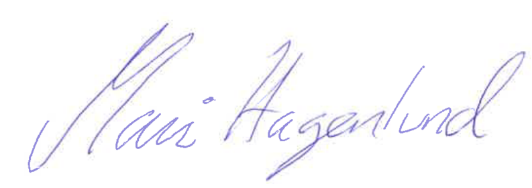 Mari Hagenlund